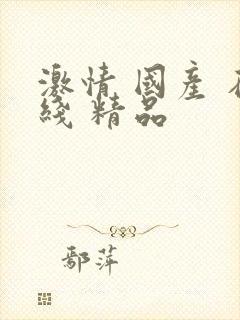 激情 國產 在
綫 精品
鄢萍